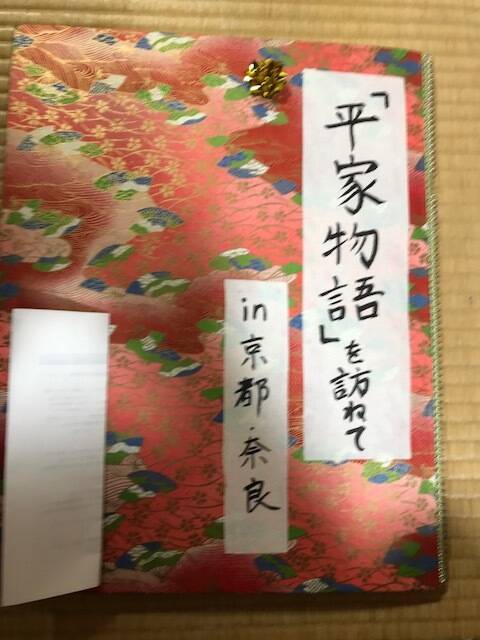 「平家物語」を訪ねて
in京都・奈良